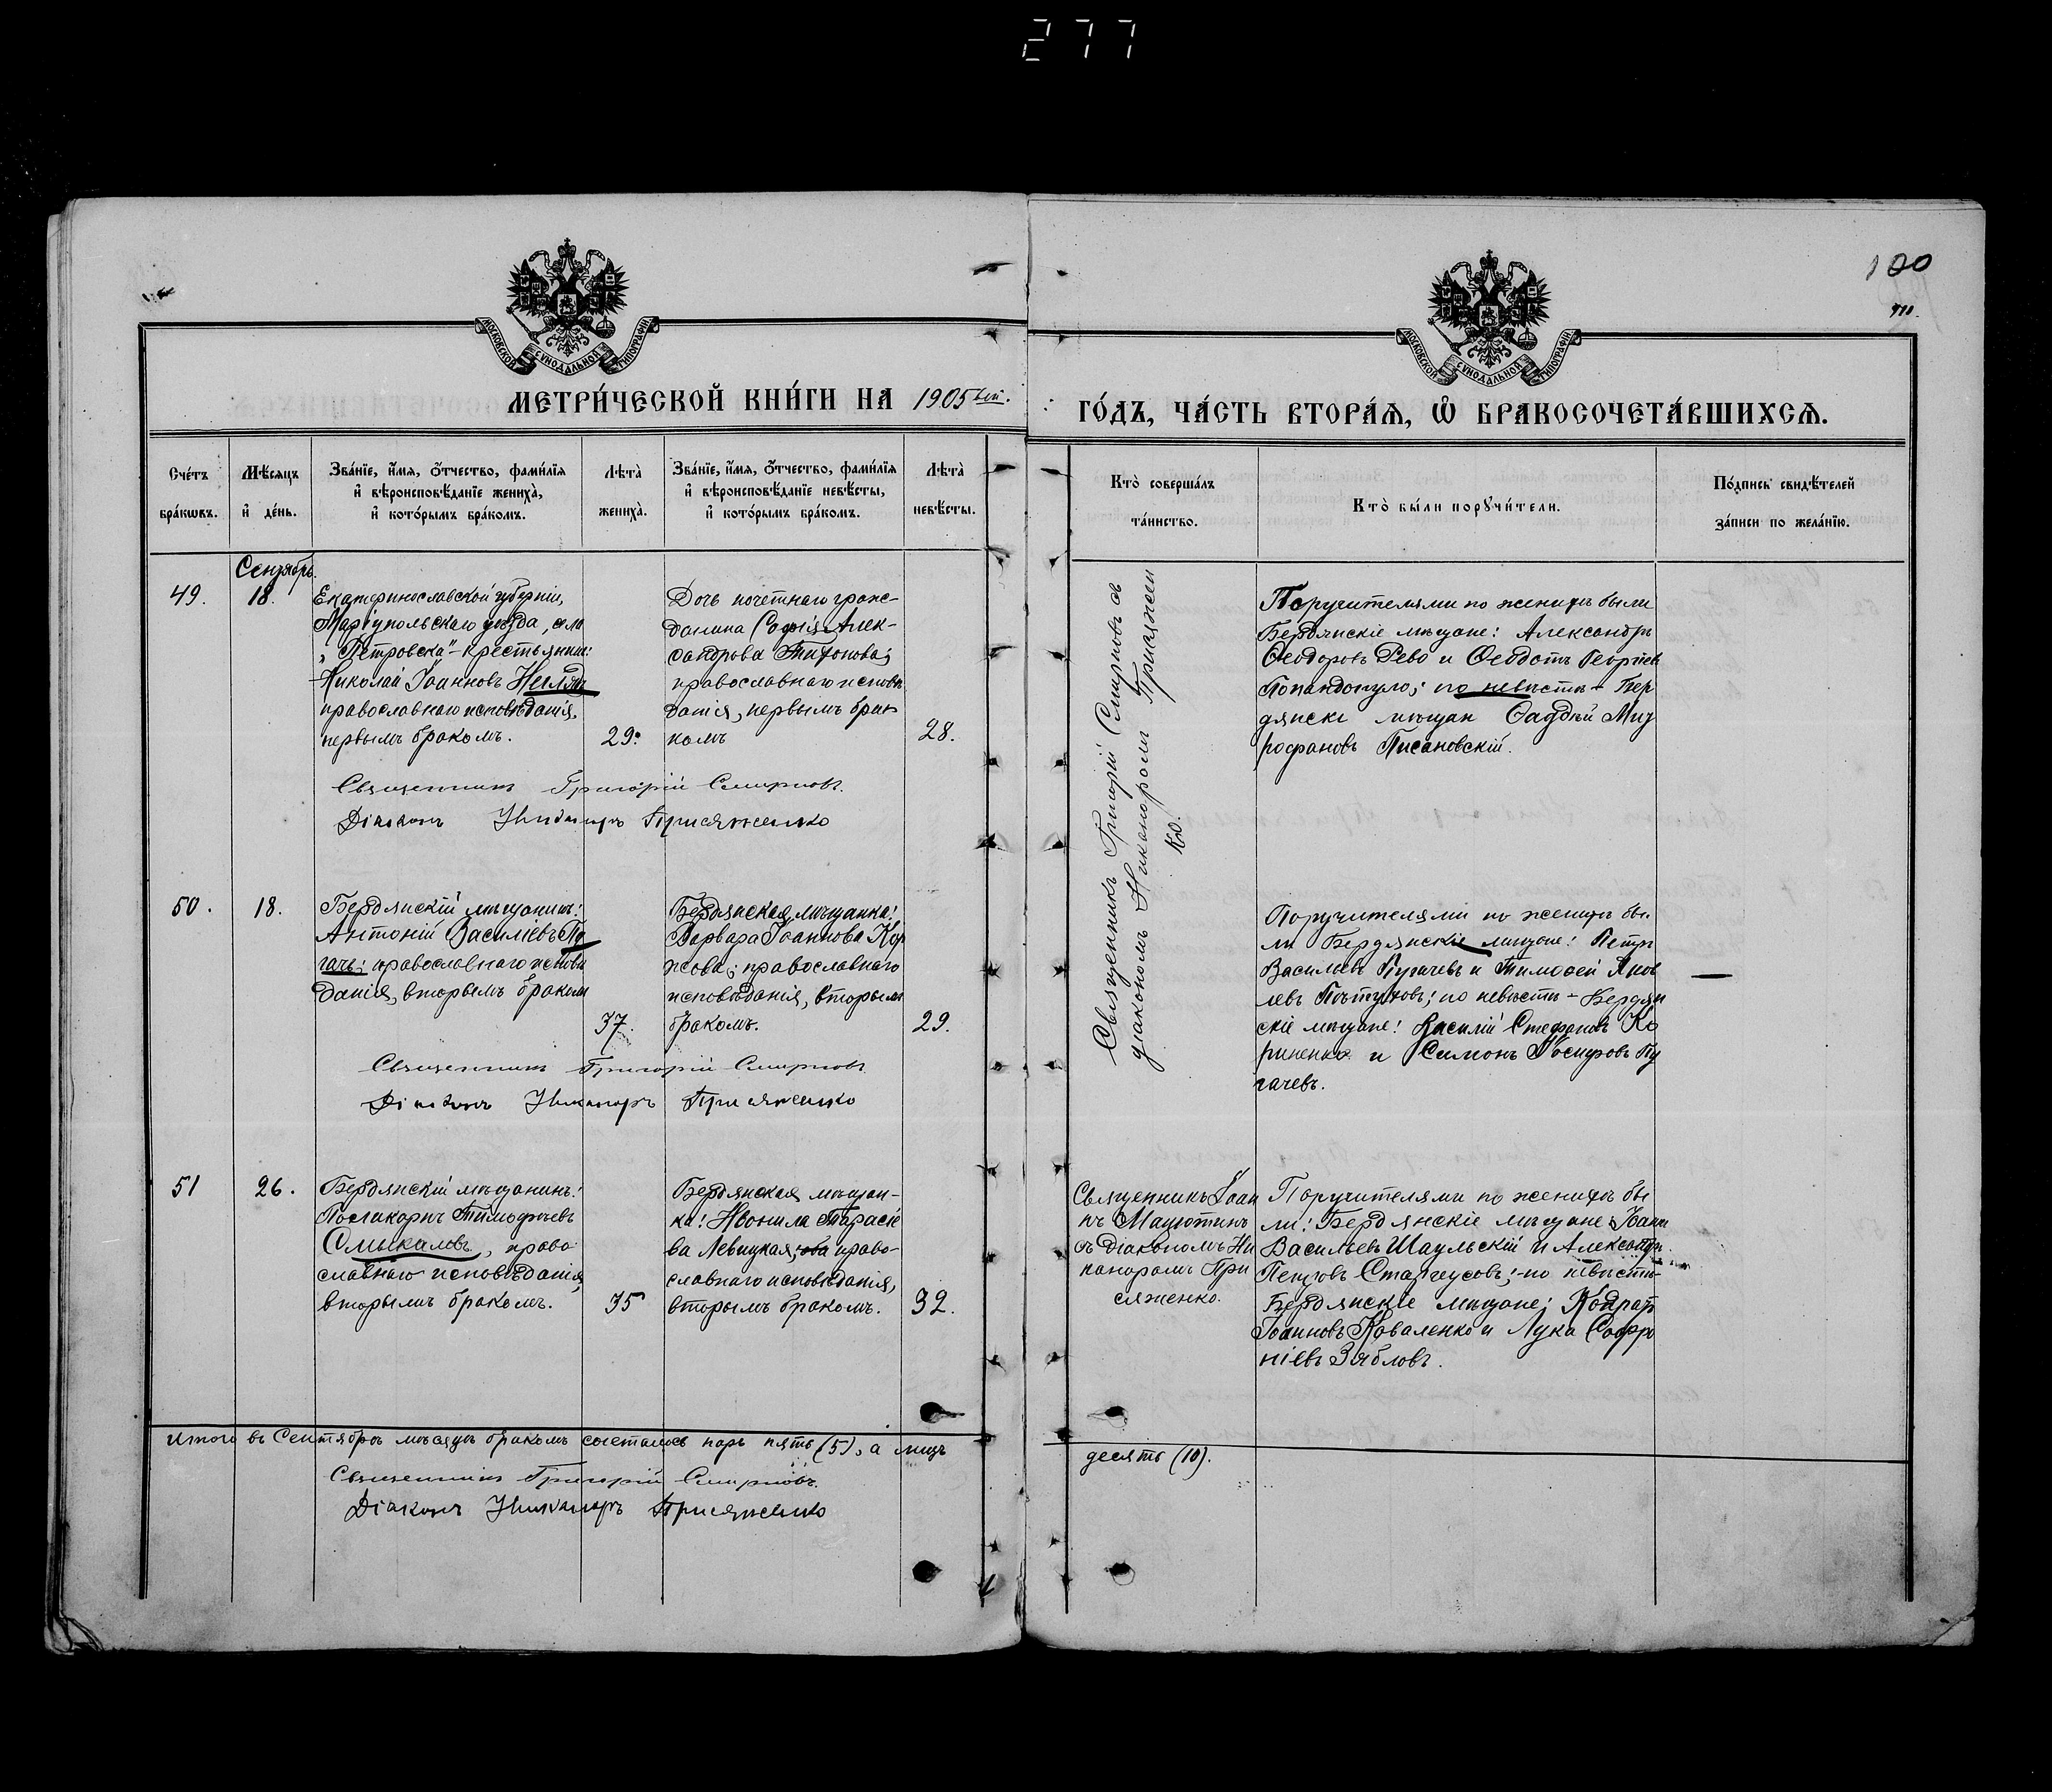 277
100
МОСКОВСКОЙ СУНОДАЛЬНОЙ ТИПОГРАФІИ
МОСКОВСКОЙ СУНОДАЛЬНОЙ ТИПОГРАФІИ
МЕТРИ́ЧЕСКОЙ КНИ́ГИ НА 1905
ГО́ДЪ, ЧА́СТЬ ВТОРА́Ѧ, Ѡ БРАКОСОЧЕТА́ВШИХСѦ.
Сче́тъ бра́кѡвъ.
Мѣ́сѧцъ и҆ де́нь.
Зва́нїе, и҆́мѧ, ѻ҆́тчество, фами́лїѧ и҆ вѣроисповѣ́данїе жениха̀, и҆ кото́рымъ бра́комъ.
Лѣта̀ жениха̀.
Зва́нїе, и҆́мѧ, ѻ҆́тчество, фами́лїѧ и҆ вѣроисповѣ́данїе невѣ́сты, и҆ кото́рымъ бра́комъ.
Лѣта̀ невѣ́сты.
Кто̀ соверша́лъ та́инство.
Кто̀ бы́ли порꙋчи́тели.
По́дпись свидѣ́телей за́писи по жела́нїю.
Сентябрь.
49.
18.
Екатеринославской губерніи,
Маріупольскаго уѣзда, села
„Петровска"- крестьянинъ:
Николай Іоанновъ
православнаго исповѣданія,
первымъ бракомъ.
29.
Дочь почетнаго граж-
данина Софія Алек-
сандрова Тихонова;
православнаго исповѣ
данія, первымъ бра-
комъ
28.
Священникъ Григорій Смирновъ съ
діакономъ Никаноромъ Присяжен
ко.
Поручителями по женихѣ были
Бердянскіе мѣщане: Александръ
Ѳеодоровъ Рево и Ѳеодотъ Георгіевъ
Попандопуло; по невѣстѣ - Бер
дянскі мѣщан Ѳаддѣй Мит
рофановъ Писановскій.
Священникъ Григорій Смирновъ.
Діаконъ Никаноръ Присяженко
50.
18.
Бердянскій мѣщанинъ:
Антоній Василіевъ Пу
гачъ; православнаго исповѣ
данія, вторымъ бракомъ
37.
Бердянская мѣщанка:
Варвара Іоаннова Кор
жова; православнаго
исповѣданія, вторымъ
бракомъ.
29.
Поручителями по женихѣ бы-
ли Бердянскіе мѣщане: Петръ
Васильевъ Пугачевъ и Тимоѳей Яков
левъ Пѣтуховъ; по невѣстѣ - Бердян
скіе мѣщане: Василій Стефановъ Ко
риненко и Симонъ Іосифовъ Пу
гачевъ.
Священникъ Григорій Смирновъ
Діаконъ Никаноръ Присяженко
51
26.
Бердянскій мѣщанинъ:
Поликарпъ Тимофеевъ
Смыкаловъ, право
славнаго исповѣданія,
вторымъ бракомъ.
35
Бердянская мѣщан-
ка: Неонила Тарасіе
ва Левицкая; оба право-
славнаго исповѣданія,
вторымъ бракомъ.
32.
Священникъ Іоан
нъ Мацютинъ
съ діакономъ Ни
каноромъ При
сяженко.
Поручителями по женихѣ бы
ли: Бердянскіе мѣщане: Іоаннъ
Васильевъ Шаульскій и Александръ
Петровъ; по невѣстѣ -
Бердянскіе мѣщане: Кодратъ
Іоанновъ Коваленко и Лука Софро
ніевъ Зябловъ.
Итого въ Сентябрѣ мѣсяцѣ бракомъ сочеталось паръ пять (5), а лицъ
десять (10).
Священникъ Григорій Смирновъ.
Діаконъ Никаноръ Присяженко